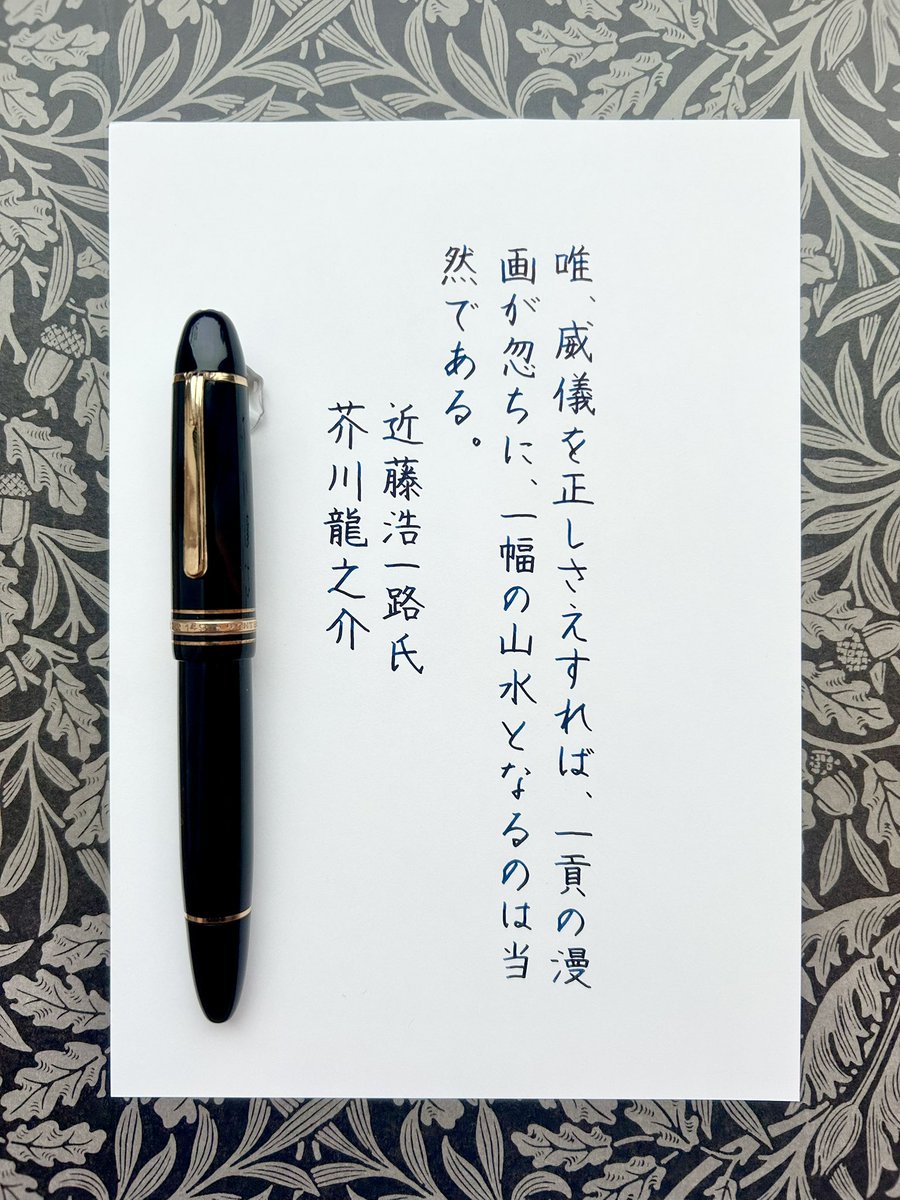 唯、威儀を正しさえすれば、一貢の漫
画が忽ちに、一幅の山水となるのは当
然である。
近藤浩一路氏
芥川龍之介